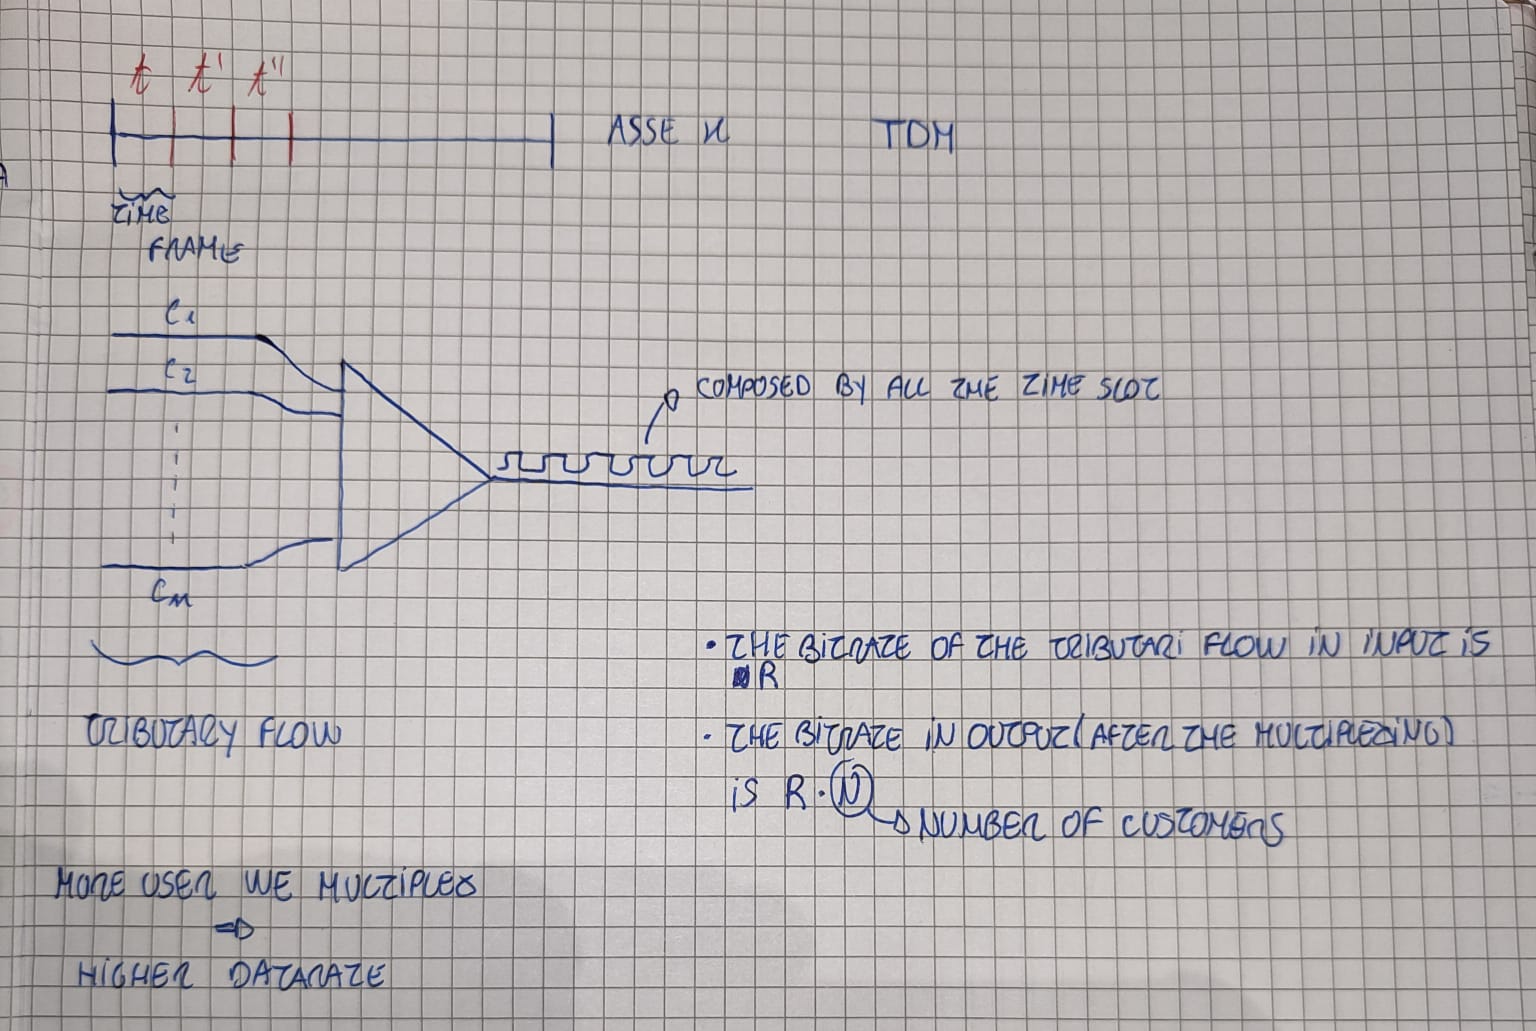 t t' t''
ASSE X TDM
TIME
FRAME
C1
C2
COMPOSED BY ALL THE TIME SLOT
Cn
• THE BITRATE OF THE TRIBUTARI FLOW IN INPUT IS
R
TRIBUTARY FLOW
• THE BITRATE IN OUTPUT (AFTER THE MULTIPLEXING)
IS R · N
NUMBER OF CUSTOMERS
MORE USER WE MULTIPLEX
⇒
HIGHER DATARATE